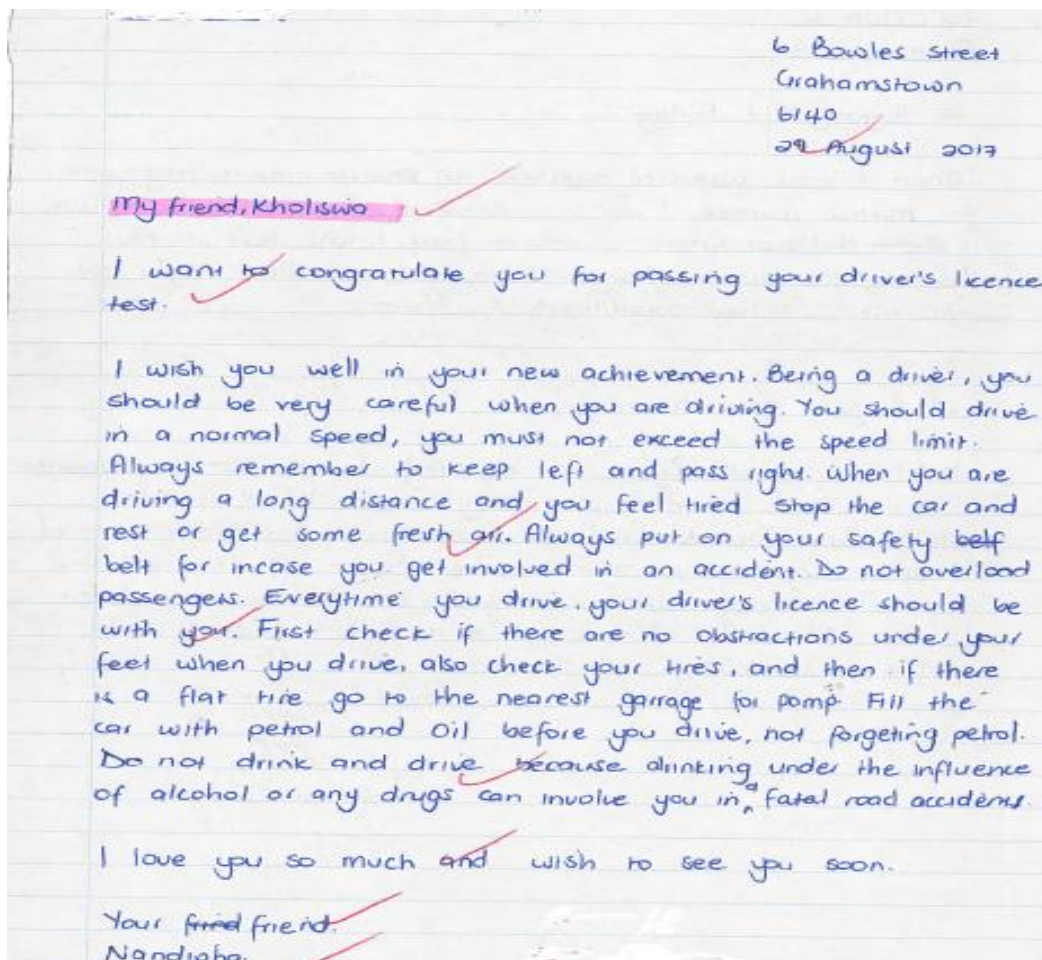 6 Bowles Street
Grahamstown
6140
29 August 2017
My friend, Kholiswa
I want to congratulate you for passing your driver's licence
test.
I wish you well in your new achievement. Being a driver, you
should be very careful when you are driving. You should drive
in a normal speed, you must not exceed the speed limit.
Always remember to keep left and pass right. When you are
driving a long distance and you feel tired stop the car and
rest or get some fresh air. Always put on your safety belf
belt for incase you get involved in an accident. Do not overload
passengers. Everytime you drive, your driver's licence should be
with you. First check if there are no obstractions under your
feet when you drive, also check your tires, and then if there
is a flat tire go to the nearest garrage for pomp. Fill the
car with petrol and oil before you drive, not forgeting petrol.
Do not drink and drive because drinking under the influence
of alcohol or any drugs can involve you in a fatal road accidents.
I love you so much and wish to see you soon.
Your frind friend.